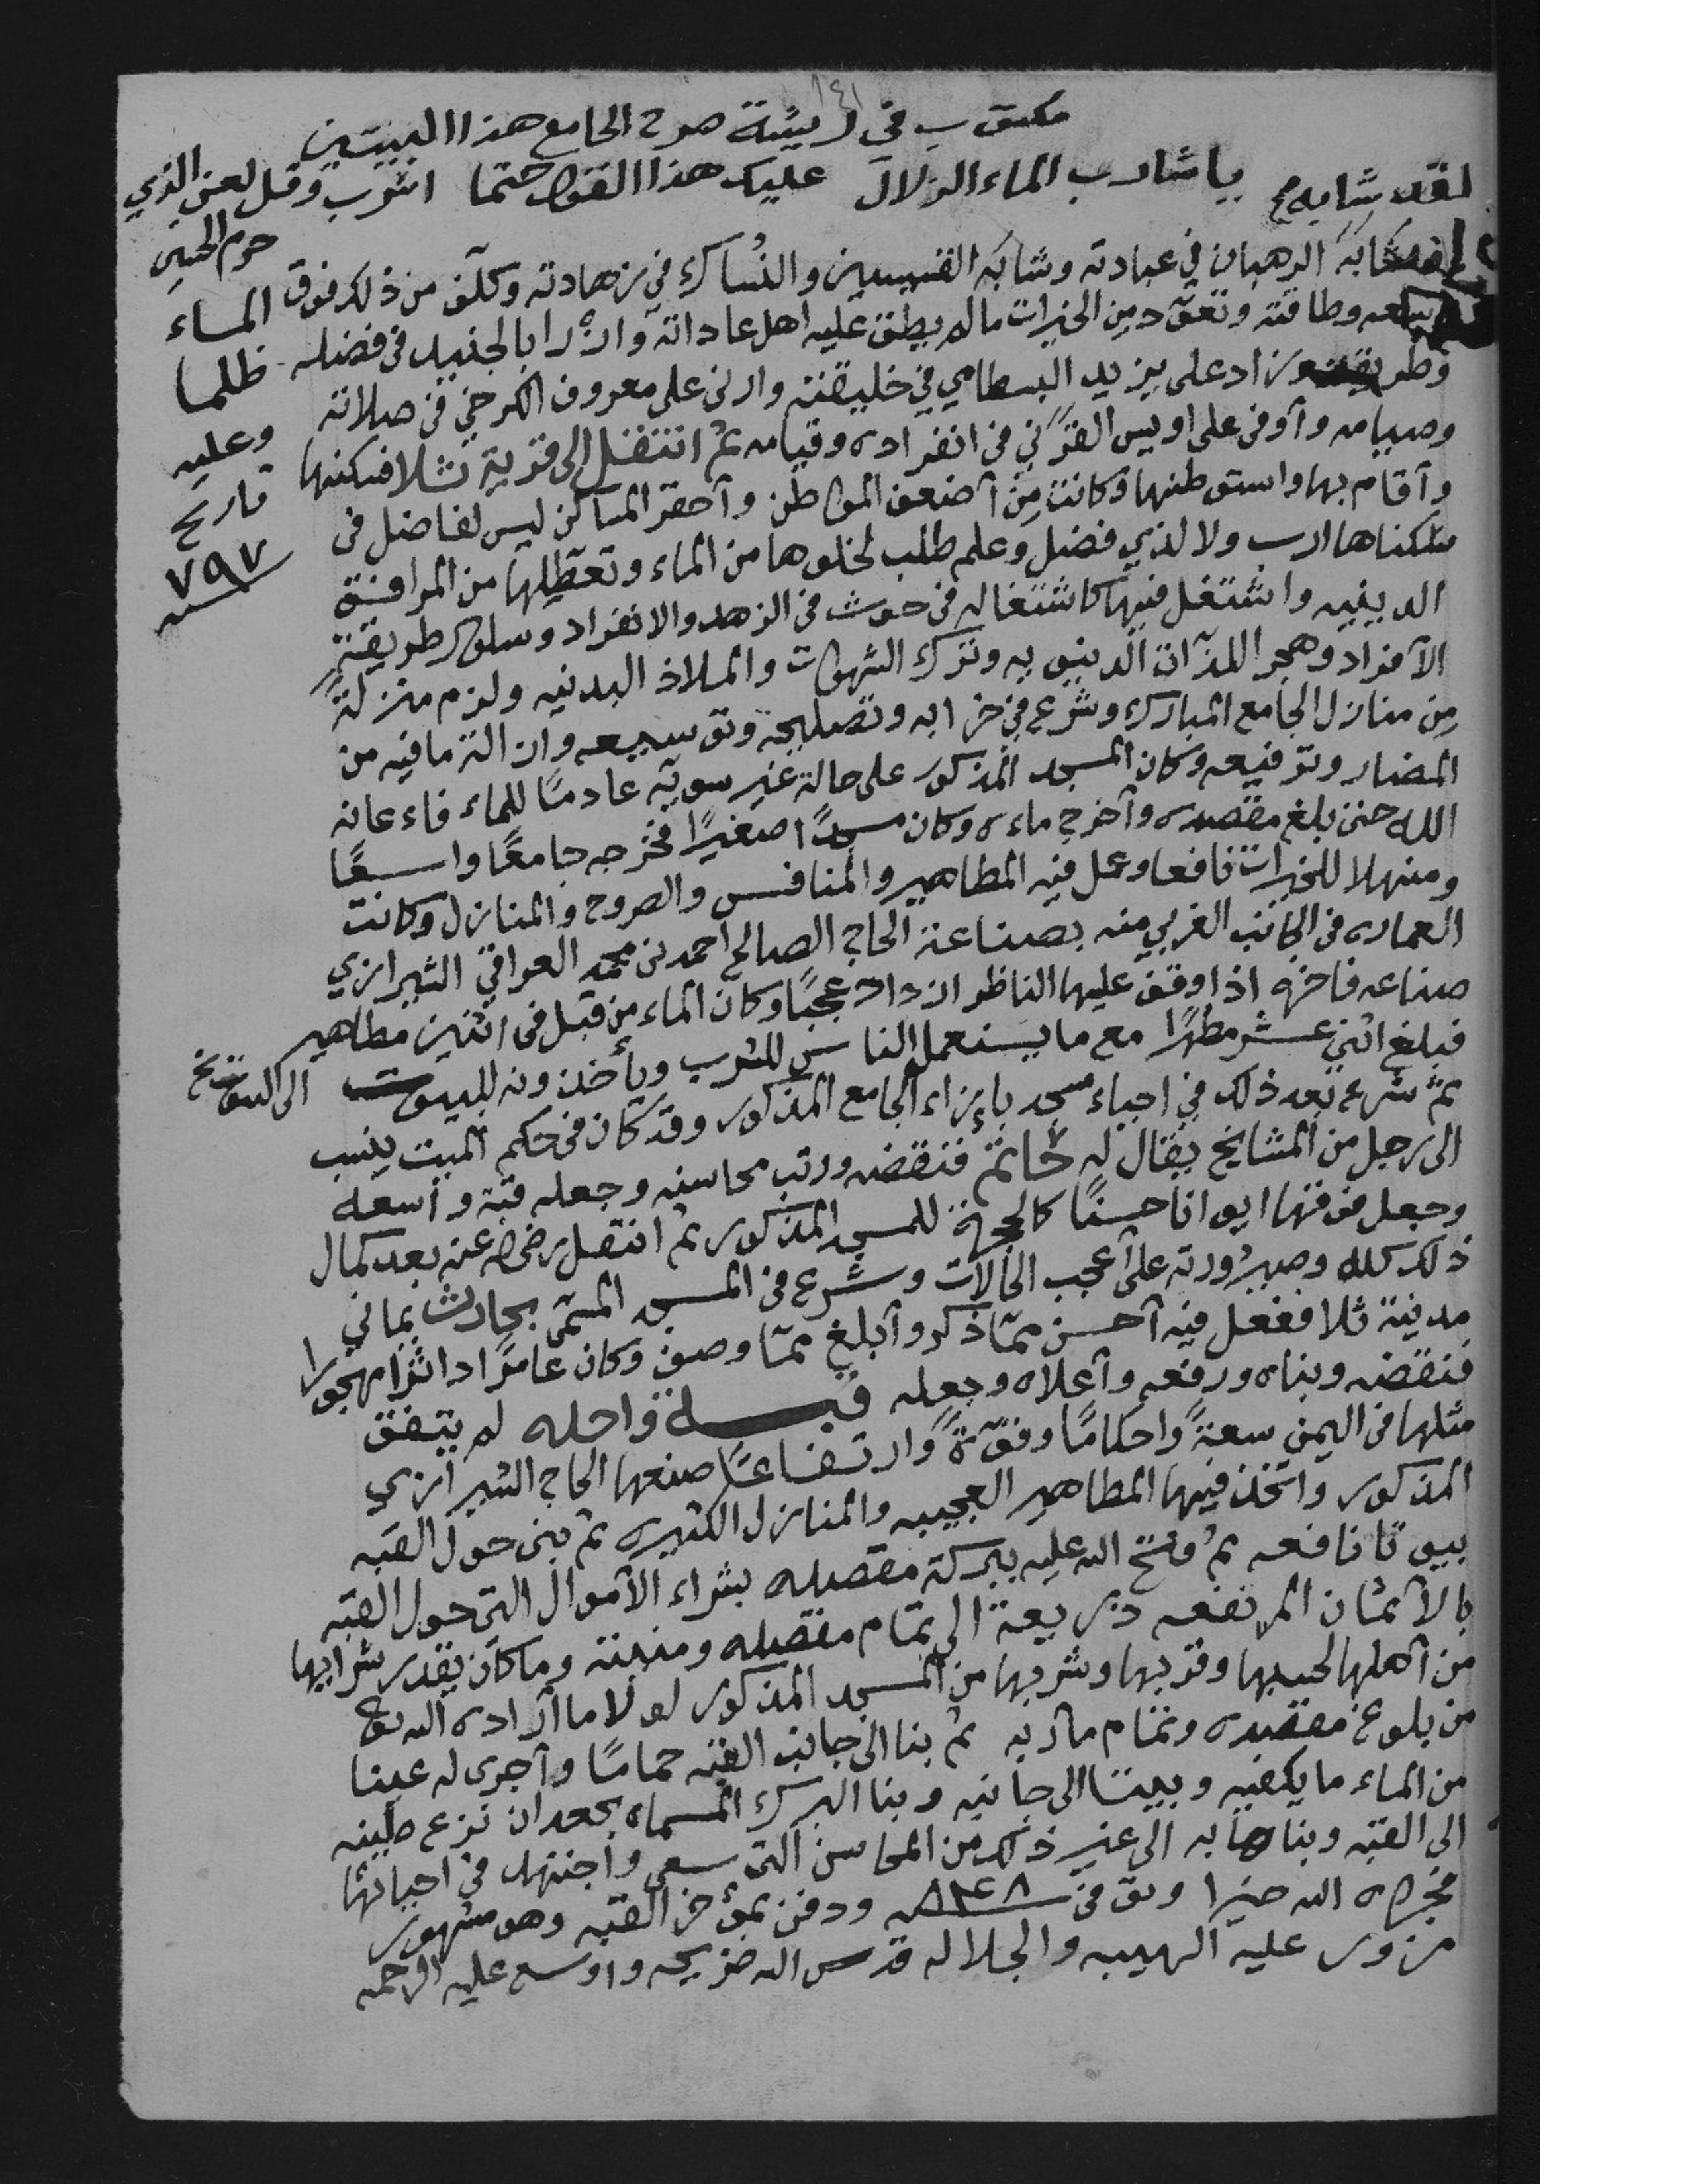 ١٤١
مكتوب في بيئة صرح الجامع هذا البيتين
لقد شابه مح يا شارب الماء الزلال عليك هذا القول حتما اشرب وقل لعن الذي
حرم الحسين
الماء
ظلما
وعليه
تاريخ
٧٩٧
شابَهَ الرهبان في عبادته وشابَه القسيسين والنُساك في زهادته وكلّف من ذلك فوق
وسعه وطاقته وتعوّد من الخيرات ما لم يطق عليه اهل عاداته وازرا بالجنيد في فضله
وطريقته وزاد على يزيد البسطامي في خليقته واربى على معروف الكرخي في صلاته
وصيامه وأوفى على اويس القرني في انفراده وقيامه ثم انتقل إلى قرية ثلا فسكنها
وأقام بها واستوطنها وكانت مِن أضعف المواطن وأحقر المساكن ليس لفاضل في
سكناها ارب ولا لذي فضل وعلم طلب لخلوها من الماء وتعطيلها من المرافق
الدينيه واشتغل فيها كاشتغاله في حوث في الزهد والانفراد وسلوك طريقة
الأفراد وهجر اللذات الدنيويه وترك الشهوات والملاذ البدنيه ولزم منزلةً
مِن منازل الجامع المبارك وشرع في خرابه وتصليحه وتوسيعه وازالة ما فيه من
المضار وترفيعه وكان المسجد المذكور على حالة غير سويّه عادمًا للماء فاعانه
الله حتى بلغ مقصده وأخرج ماءه وكان مسجدًا صغيرًا فخرجه جامعًا واسعًا
ومنهلا للخيرات نافعا وعمل فيه المطاهير والمنافس والصروح والمنازل وكانت
العماره في الجانب الغربي منه بصناعة الحاج الصالح احمد بن محمد العراقي الشيرازي
صناعه فاخره اذا وقف عليها الناظر ازداد عجبًا وكان الماء من قبل في اثنين مطاهير
فبلغ اثني عشر مطهرًا مع ما يستعمل الناس للشرب ويأخذونه للبيوت الى التاريخ
ثم شرع بعد ذلك في احياء مسجد بإزاء الجامع المذكور وقد كان في حكم الميت ينسب
الى رجل من المشايخ يقال له حاتم فنقضه ورتب محاسنه وجعله قبة واسعه
وجعل فوقها ايوانا حسنًا كالحجرة للمسجد المذكور ثم انتقل رضي الله عنه بعد كمال
ذلك كله وصيرورته على أعجب الحالات وشرع في المسجد المسمّى بحارث يماني
مدينة ثلا ففعل فيه أحسن ممّا ذكر وأبلغ ممّا وصف وكان عامرًا داثرا مهجورا
فنقضه وبناه ورفعه وأعلاه وجعله قبة واحده لم يتفق
مثلها في اليمن سعةً واحكامًا وقوّةً وارتفاعًا صنعها الحاج الشيرازي
المذكور واتخذ فيها المطاهير العجيبه والمنازل الكثيره ثم بنى حول القبه
بيوتا نافعه ثم فتح الله عليه ببركة مقصده بشراء الأموال التي حول القبه
بالأثمان المرتفعه ذريعة الى تمام مقصده ومنيته وما كان يقدر شرايها
من أهلها لحسبها وقربها وشربها من المسجد المذكور لولا ما أراده الله تع
من بلوغ مقصده وتمام مآربه ثم بنا الى جانب القبه حمامًا وأجرى له عينا
من الماء ما يكفيه وبيتا الى جانبه وبنا البرك المسماه بعد ان نزع طينه
الى القبه وبناها به الى غير ذلك من المحاسن التي سعى واجتهد في احيائها
فجزاه الله خيرا وتو في ٨٣٤٨ ودفن بمؤخر القبه وهو مشهور
مزور عليه الهيبه والجلاله قدس الله ضريحه واوسع عليه الرحمه